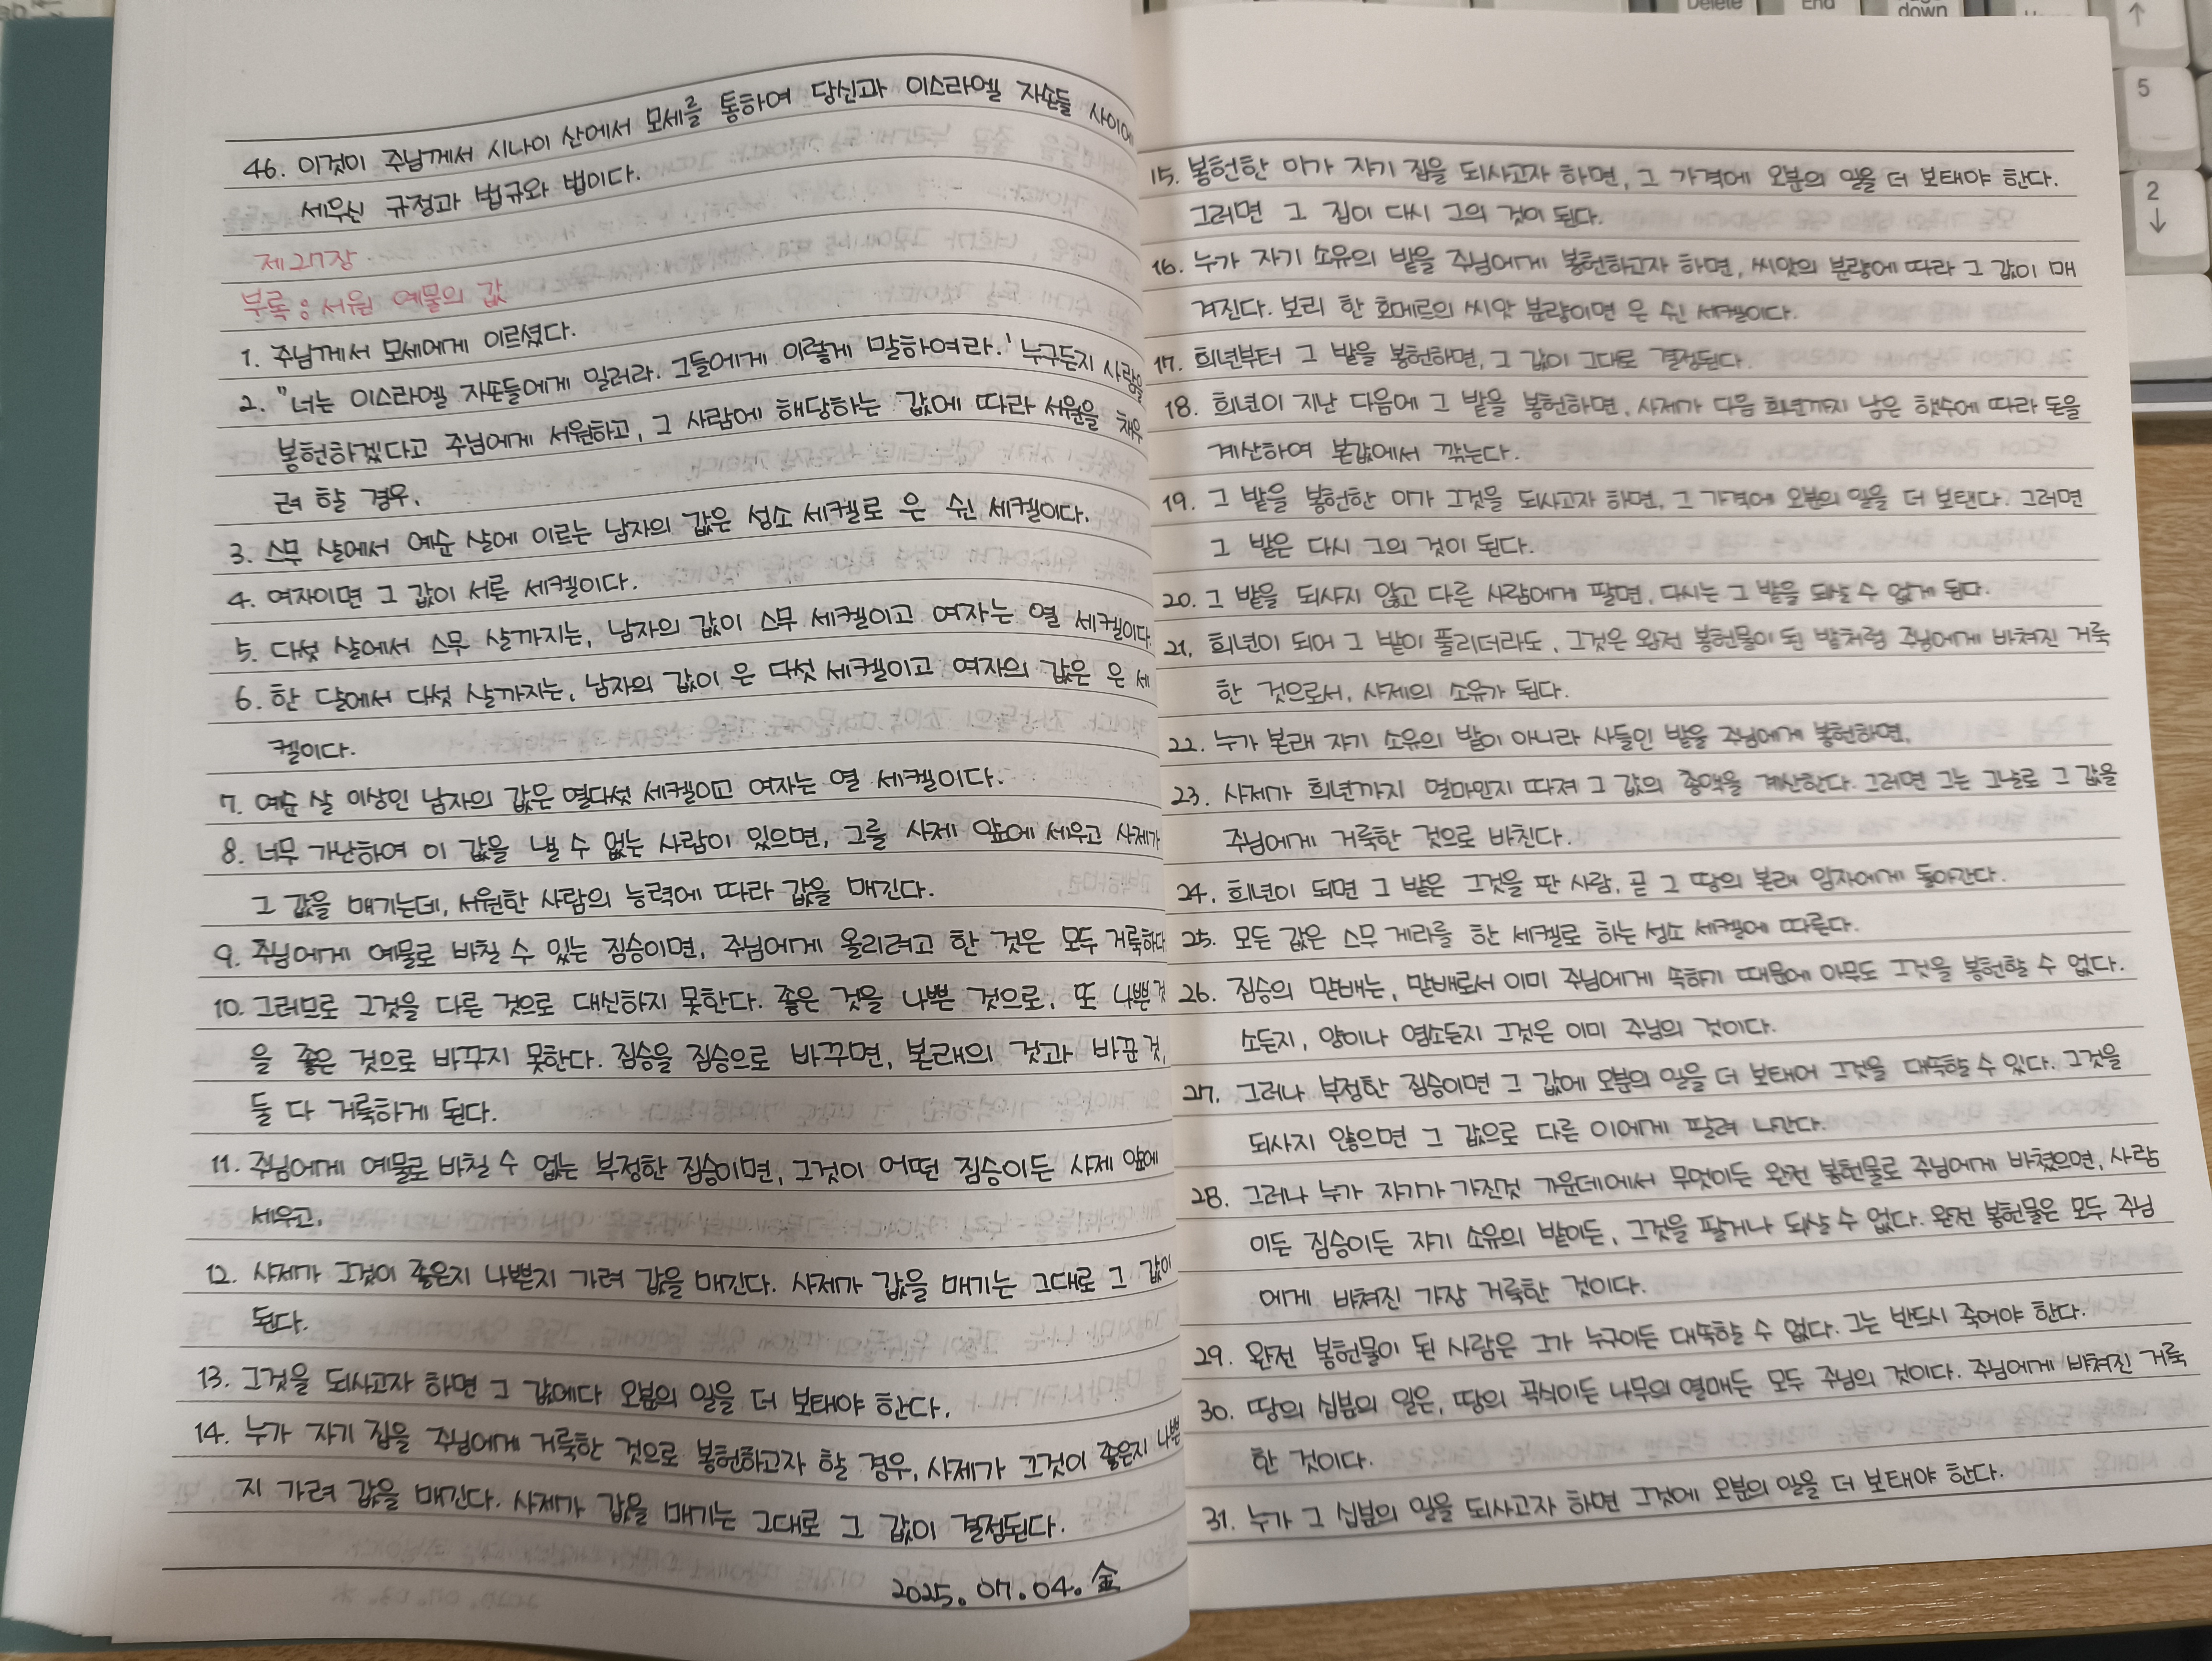 46. 이것이 주님께서 시나이 산에서 모세를 통하여 당신과 이스라엘 자손들 사이에
세우신 규정과 법규와 법이다.
제27장
부록 : 서원 예물의 값
1. 주님께서 모세에게 이르셨다.
2. "너는 이스라엘 자손들에게 일러라. 그들에게 이렇게 말하여라. '누구든지 사람을
봉헌하겠다고 주님에게 서원하고, 그 사람에 해당하는 값에 따라 서원을 채우
려 할 경우,
3. 스무 살에서 예순 살에 이르는 남자의 값은 성소 세켈로 은 쉰 세켈이다.
4. 여자이면 그 값이 서른 세켈이다.
5. 다섯 살에서 스무 살까지는, 남자의 값이 스무 세켈이고 여자는 열 세켈이다.
6. 한 달에서 다섯 살까지는, 남자의 값이 은 다섯 세켈이고 여자의 값은 은 세
켈이다.
7. 예순 살 이상인 남자의 값은 열다섯 세켈이고 여자는 열 세켈이다.
8. 너무 가난하여 이 값을 낼 수 없는 사람이 있으면, 그를 사제 앞에 세우고 사제가
그 값을 매기는데, 서원한 사람의 능력에 따라 값을 매긴다.
9. 주님에게 예물로 바칠 수 있는 짐승이면, 주님에게 올리려고 한 것은 모두 거룩하다
10. 그러므로 그것을 다른 것으로 대신하지 못한다. 좋은 것을 나쁜 것으로, 또 나쁜 것
을 좋은 것으로 바꾸지 못한다. 짐승을 짐승으로 바꾸면, 본래의 것과 바꾼 것,
둘 다 거룩하게 된다.
11. 주님에게 예물로 바칠 수 없는 부정한 짐승이면, 그것이 어떤 짐승이든 사제 앞에
세우고,
12. 사제가 그것이 좋은지 나쁜지 가려 값을 매긴다. 사제가 값을 매기는 그대로 그 값이
된다.
13. 그것을 되사고자 하면 그 값에다 오분의 일을 더 보태야 한다.
14. 누가 자기 집을 주님에게 거룩한 것으로 봉헌하고자 할 경우, 사제가 그것이 좋은지 나쁜
지 가려 값을 매긴다. 사제가 값을 매기는 그대로 그 값이 결정된다.
2025. 07. 04. 金
15. 봉헌한 이가 자기 집을 되사고자 하면, 그 가격에 오분의 일을 더 보태야 한다.
그러면 그 집이 다시 그의 것이 된다.
16. 누가 자기 소유의 밭을 주님에게 봉헌하고자 하면, 씨앗의 분량에 따라 그 값이 매
겨진다. 보리 한 호메르의 씨앗 분량이면 은 쉰 세켈이다.
17. 희년부터 그 밭을 봉헌하면, 그 값이 그대로 결정된다.
18. 희년이 지난 다음에 그 밭을 봉헌하면, 사제가 다음 희년까지 남은 햇수에 따라 돈을
계산하여 본값에서 깎는다.
19. 그 밭을 봉헌한 이가 그것을 되사고자 하면, 그 가격에 오분의 일을 더 보탠다. 그러면
그 밭은 다시 그의 것이 된다.
20. 그 밭을 되사지 않고 다른 사람에게 팔면, 다시는 그 밭을 되살 수 없게 된다.
21. 희년이 되어 그 밭이 풀리더라도, 그것은 완전 봉헌물이 된 밭처럼 주님에게 바쳐진 거룩
한 것으로서, 사제의 소유가 된다.
22. 누가 본래 자기 소유의 밭이 아니라 사들인 밭을 주님에게 봉헌하면,
23. 사제가 희년까지 얼마인지 따져 그 값의 총액을 계산한다. 그러면 그는 그날로 그 값을
주님에게 거룩한 것으로 바친다.
24. 희년이 되면 그 밭은 그것을 판 사람, 곧 그 땅의 본래 임자에게 돌아간다.
25. 모든 값은 스무 게라를 한 세켈로 하는 성소 세켈에 따른다.
26. 짐승의 맏배는, 맏배로서 이미 주님에게 속하기 때문에 아무도 그것을 봉헌할 수 없다.
소든지, 양이나 염소든지 그것은 이미 주님의 것이다.
27. 그러나 부정한 짐승이면 그 값에 오분의 일을 더 보태어 그것을 대속할 수 있다. 그것을
되사지 않으면 그 값으로 다른 이에게 팔려 나간다.
28. 그러나 누가 자기가 가진것 가운데에서 무엇이든 완전 봉헌물로 주님에게 바쳤으면, 사람
이든 짐승이든 자기 소유의 밭이든, 그것을 팔거나 되살 수 없다. 완전 봉헌물은 모두 주님
에게 바쳐진 가장 거룩한 것이다.
29. 완전 봉헌물이 된 사람은 그가 누구이든 대속할 수 없다. 그는 반드시 죽어야 한다.
30. 땅의 십분의 일은, 땅의 곡식이든 나무의 열매든 모두 주님의 것이다. 주님에게 바쳐진 거룩
한 것이다.
31. 누가 그 십분의 일을 되사고자 하면 그것에 오분의 일을 더 보태야 한다.
Delete
End
down
↑
5
2
↓